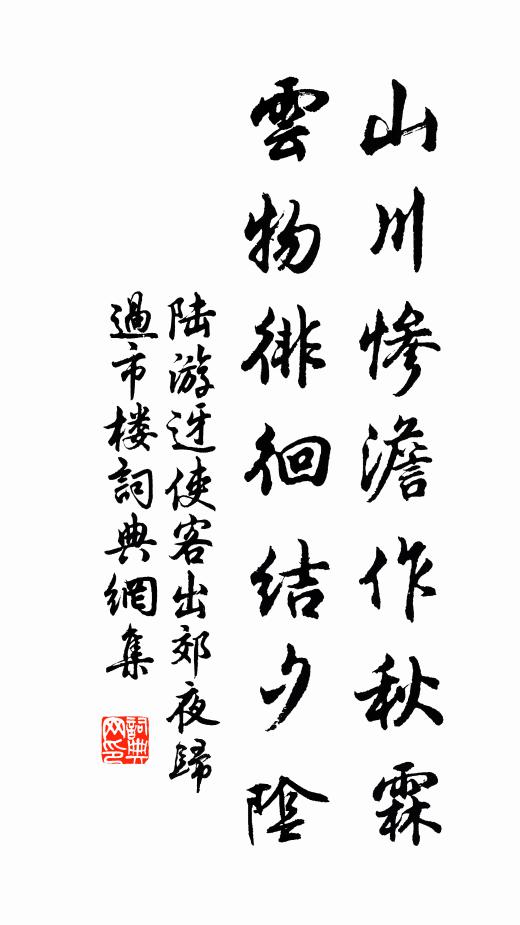 山川慘澹作秋霖
雲物徘徊結夕陰
陸游迓使客出郊夜歸
過市楼詞典網集
詞典
网印